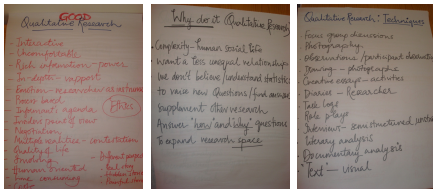 GOOD
Qualitative Research
- Interactive
- Uncomfortable
- Rich information - power
- In-depth - rapport
- Emotion - researcher as instrument
- Power
- Informants' agenda
- Insiders point of view
- Negotiation
- Multiple realities - contestation
- Quality of life
- Funding
- Human oriented
- Time consuming
Bias
Different people
Why do it (Qualitative Research
Complexity - human social life
Want a less unequal relationship
We don't believe/understand statistics
to raise new Questions/find answers
Supplement other research
Answer "how" and "why" questions
To expand research space
Qualitative Research: Techniques
- Focus group discussions
- Photography
- Observations/participant observation
- Drawing - photographs
- Creative essays - activities
- Diaries - Researcher
- Task logs
- Role plays
- Interviews - semi structured
- Literary analysis
- Documentary analysis
- Text - visual